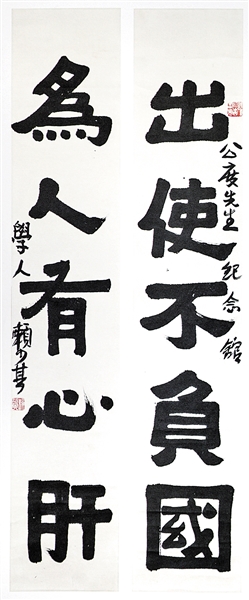 出使不負國
公度先生紀念館
為人有心肝
學人 賴少其